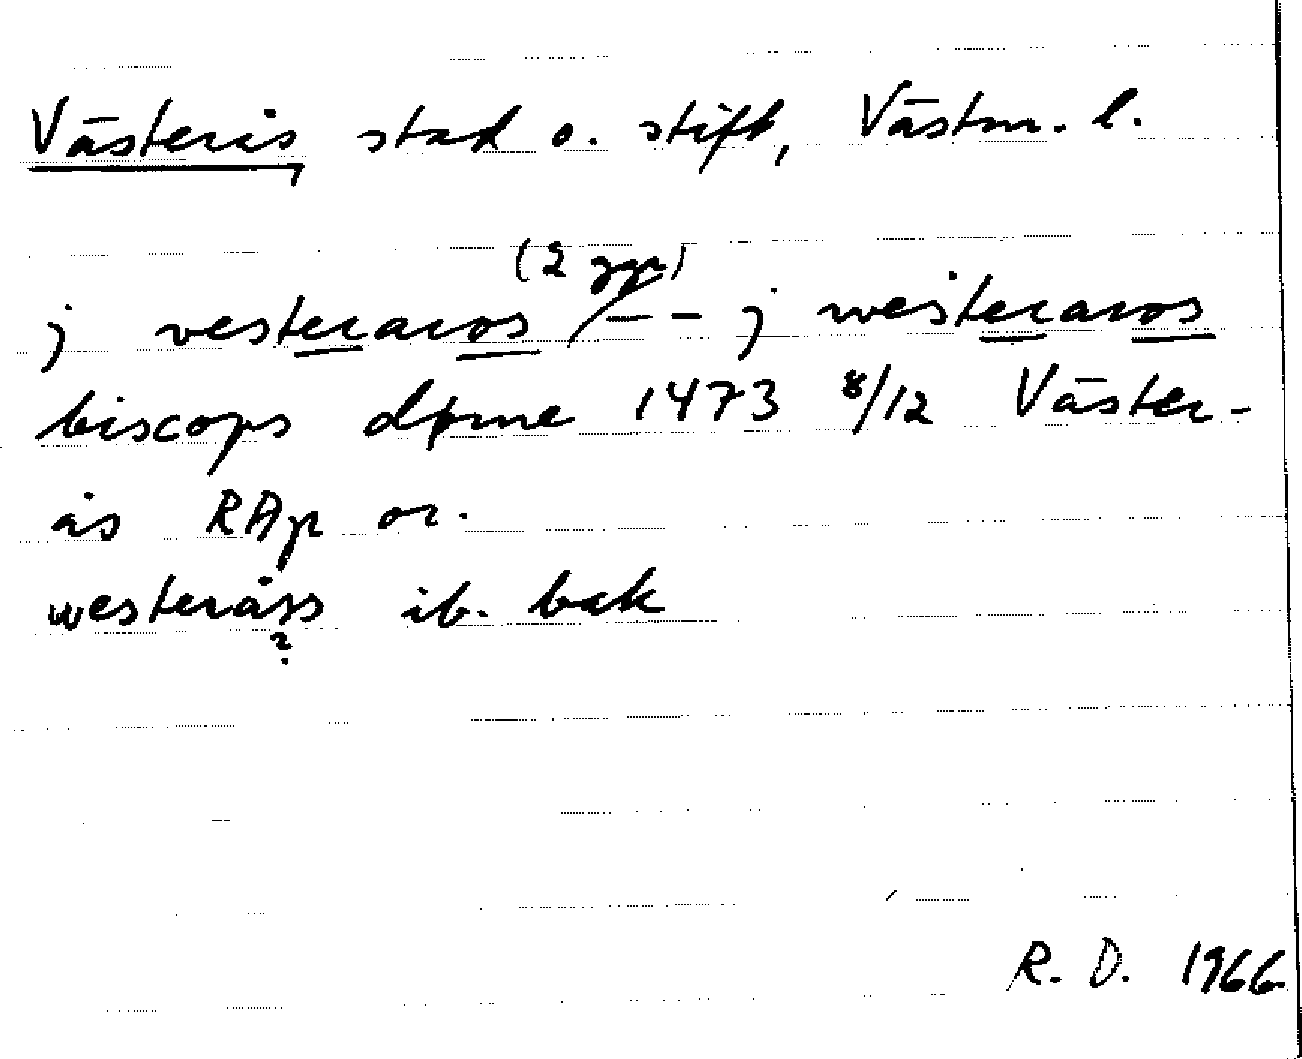 Västerås, stad o. stift, Västm. l.
(2 ggr)
j vesteraros / – – j westeraros
biscops døme 1473 8/12 Väster-
ås RAp or.
westeråss ib. bak
?
R. D. 1966